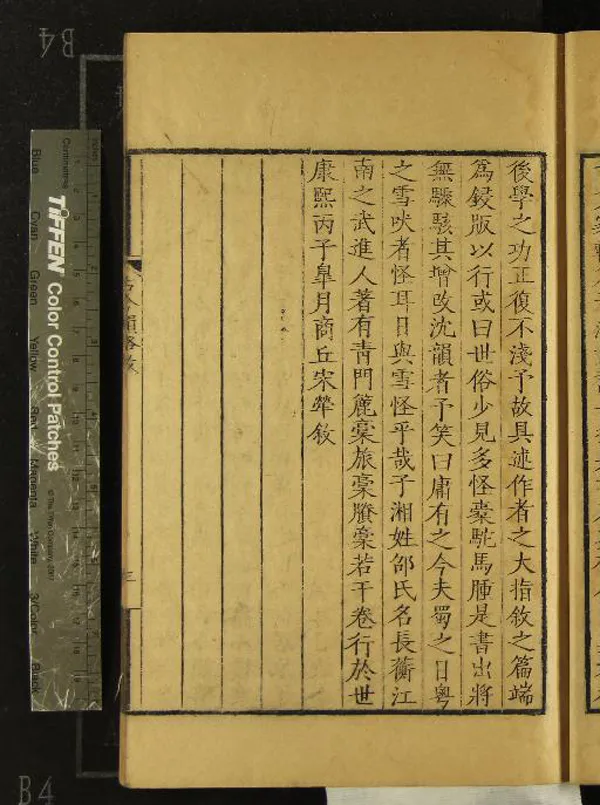 後學之功正復不淺予故具述作者之大指敘之篇端
爲鋟版以行或曰世俗少見多怪橐駝馬腫是書出將
無驟駭其增改沈韻者予笑曰庸有之今夫蜀之日粵
之雪吠者怪耳日與雪怪乎哉子湘姓邵氏名長蘅江
南之武進人著有靑門簏稾旅稾賸稾若干卷行於世
康熙丙子皐月商丘宋犖敘
古今韻略敘
三
B4
TIFFEN Color Control Patches
© The Tiffen Company, 2007
Centimetres
Blue
Cyan
Green
Yellow
Red
Magenta
White
3/Color
Black
B4